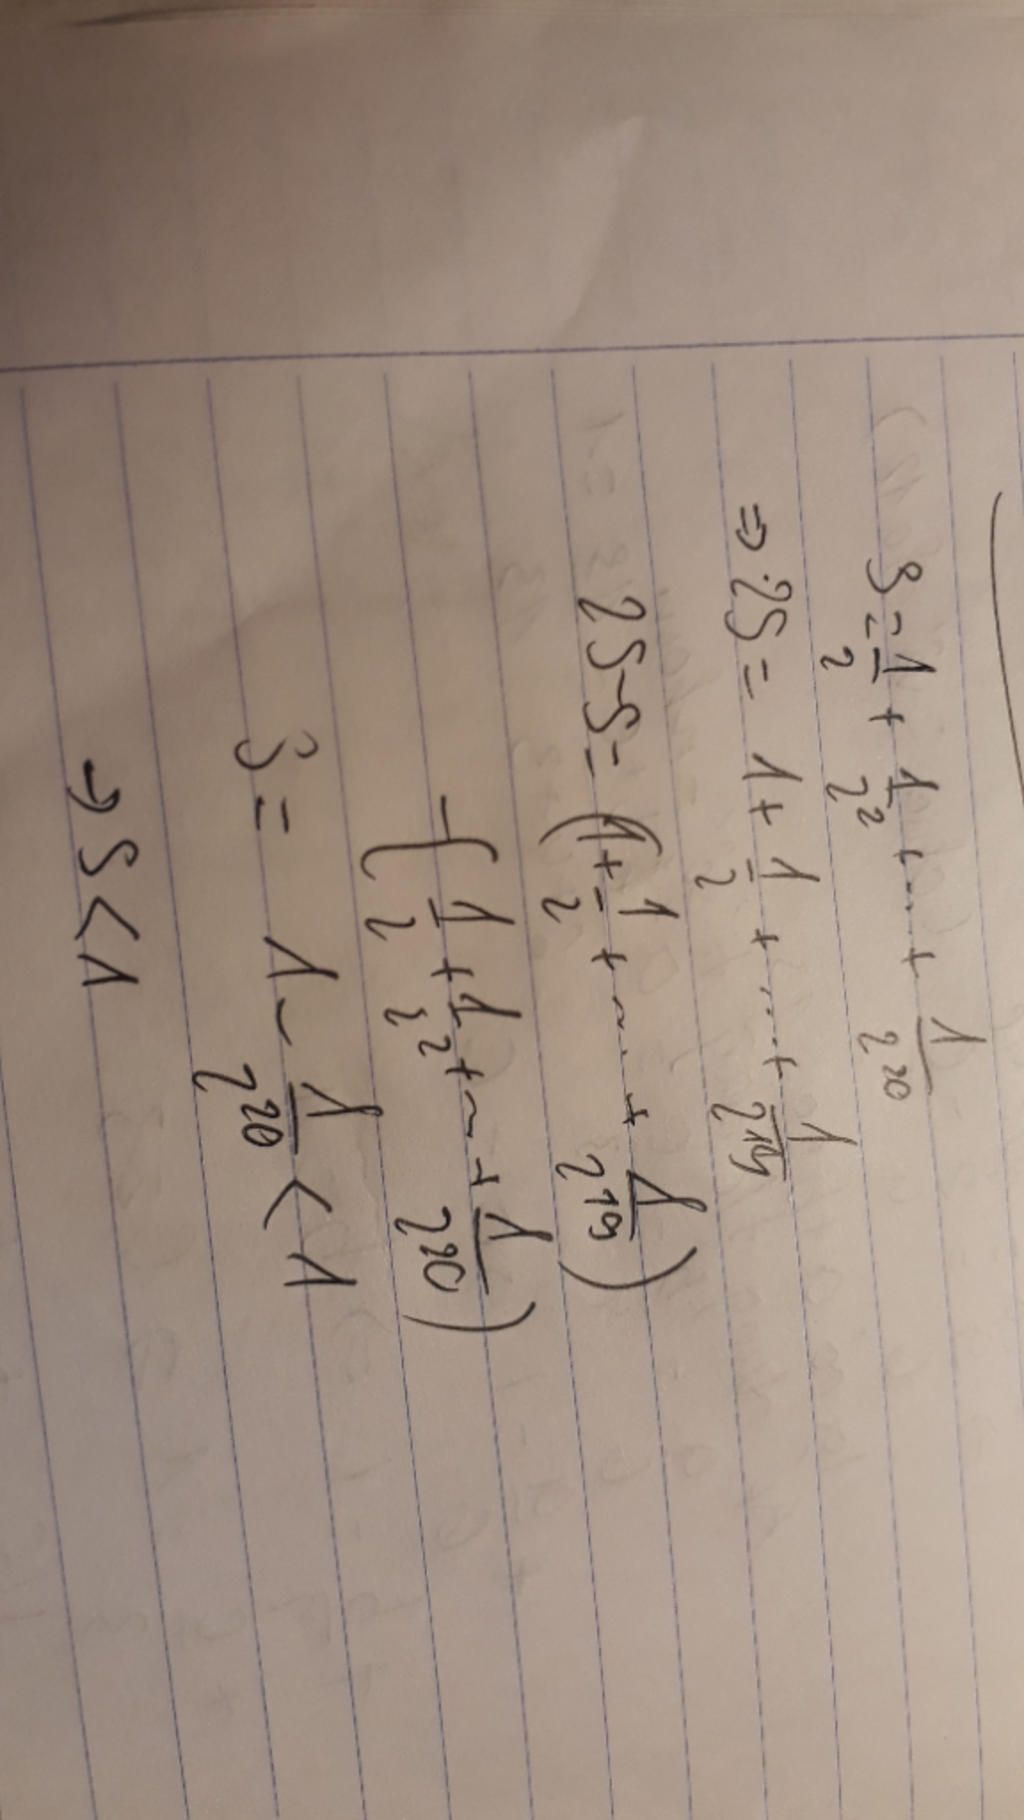 S = 1/2 + 1/2² + .... + 1/2²⁰
⇒ 2S = 1 + 1/2 + .... + 1/2¹⁹
2S - S = (1 + 1/2 + ... + 1/2¹⁹)
- (1/2 + 1/2² + ... + 1/2²⁰)
S = 1 - 1/2²⁰ < 1
→ S < 1